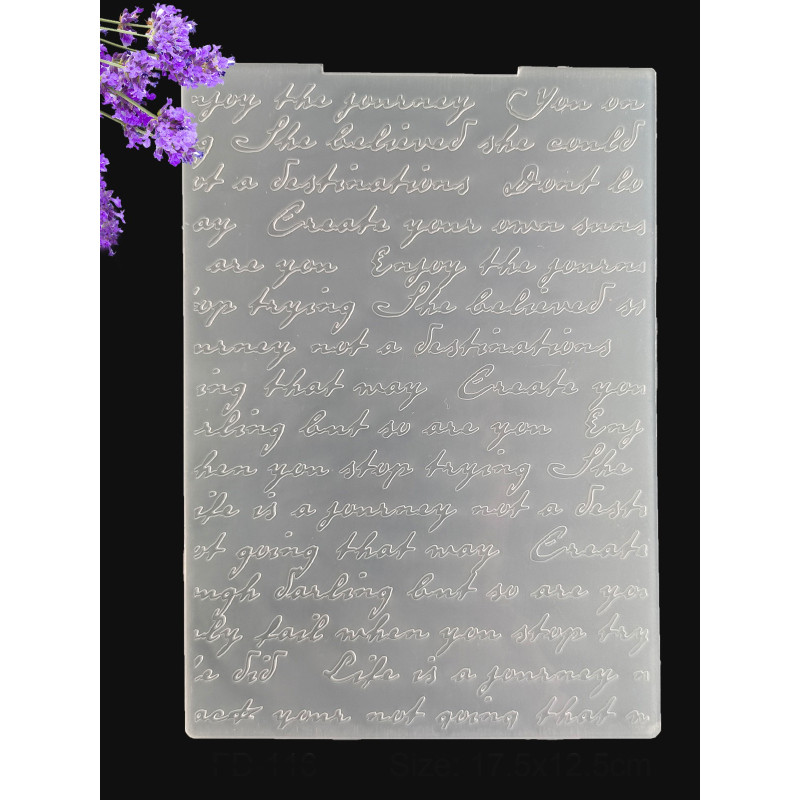 njoy the journey You on
g She believed she could
ot a destinations Dont lo
ay Create your own suns
are you Enjoy the journe
op trying She believed s
urney not a destinations
ing that way Create you
rling but so are you Enj
hen you stop trying She
ife is a journey not a desti
ot going that way Create
ugh darling but so are you
ly fail when you stop try
e did Life is a journey n
act your not going that w
FD 118 Size: 17.5x12.5cm